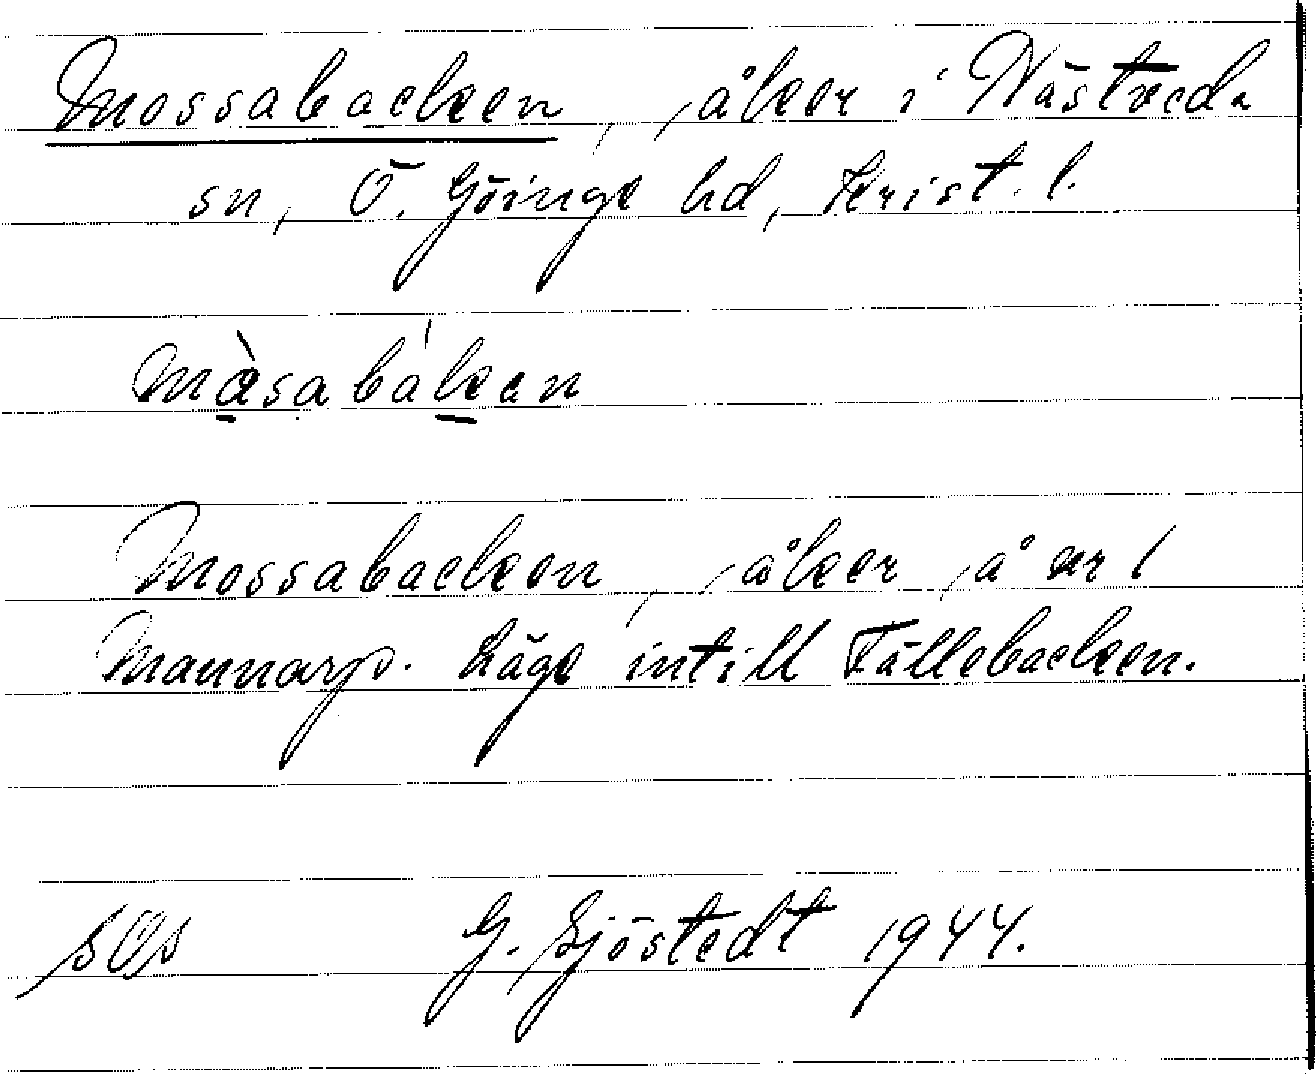 Mossabacken, åker i Näsveds
sn, Ö. Göinge hd, Krist. l.
måsabaken
Mossabacken, åker å nr 1
Mannarp. Läge intill Fällebacken.
G. Sjöstedt 1944.